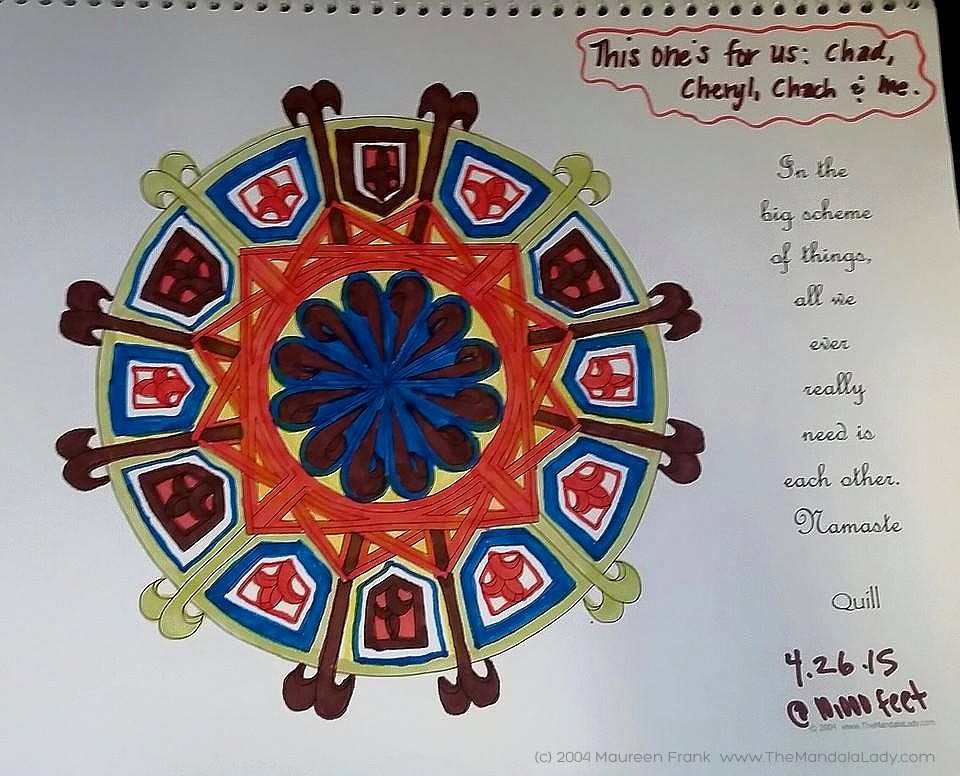 This one's for us: Chad,
Cheryl, Chach & me.
In the
big scheme
of things,
all we
ever
really
need is
each other.
Namaste
Quill
4.26.15
@ feet
© 2004 www.TheMandalaLady.com
(c) 2004 Maureen Frank www.TheMandalaLady.com